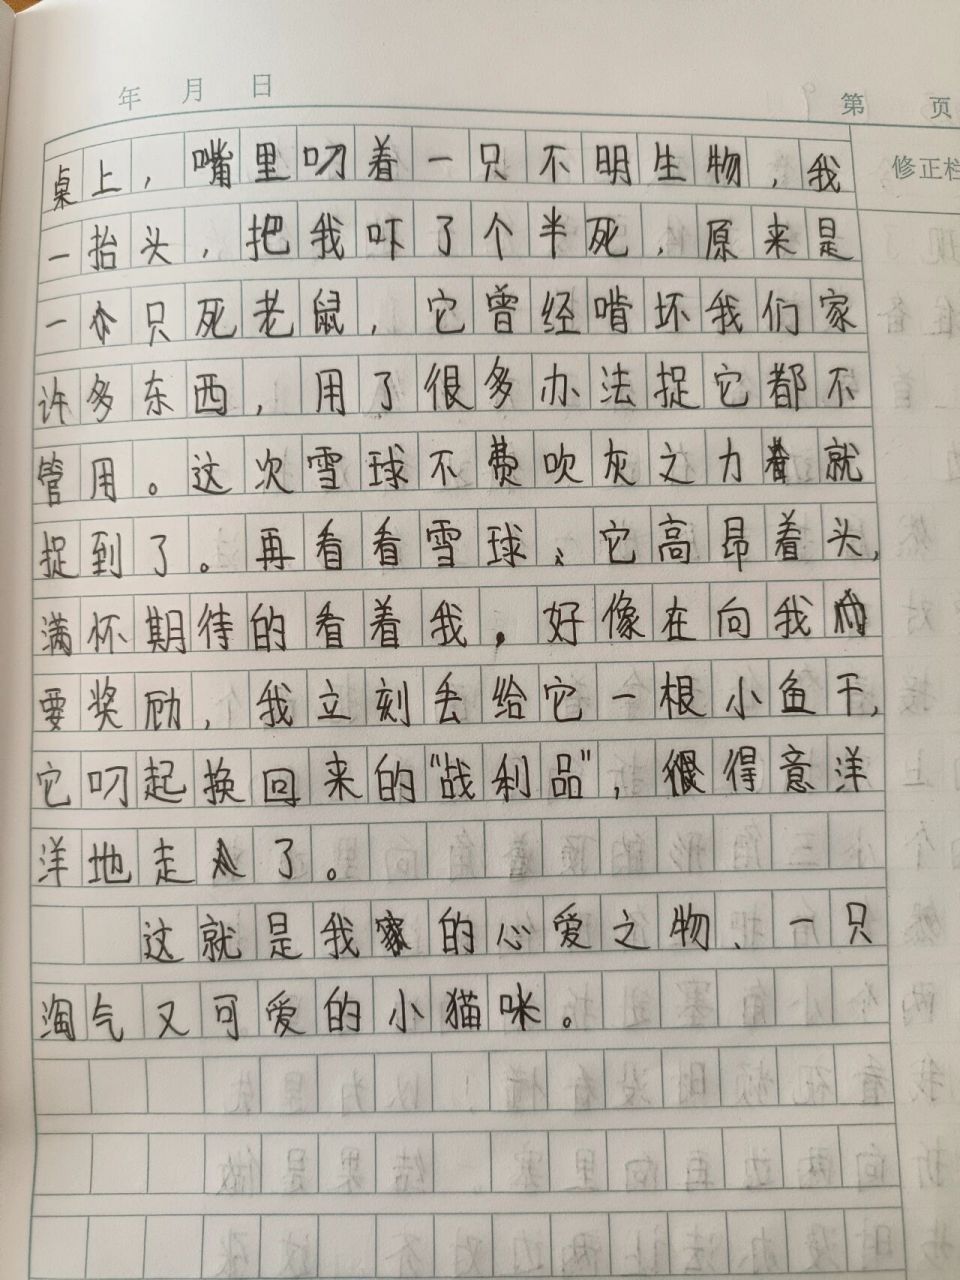 年 月 日
第 页
修正栏
桌上，嘴里叼着一只不明生物，我
一抬头，把我吓了个半死，原来是
一个只死老鼠，它曾经啃坏我们家
许多东西，用了很多办法捉它都不
管用。这次雪球不费吹灰之力就
捉到了。再看看雪球，它高昂着头，
满怀期待的看着我，好像在向我
要奖励，我立刻丢给它一根小鱼干，
它叼起换回来的“战利品”，很得意洋
洋地走了。
这就是我家的心爱之物、一只
淘气又可爱的小猫咪。